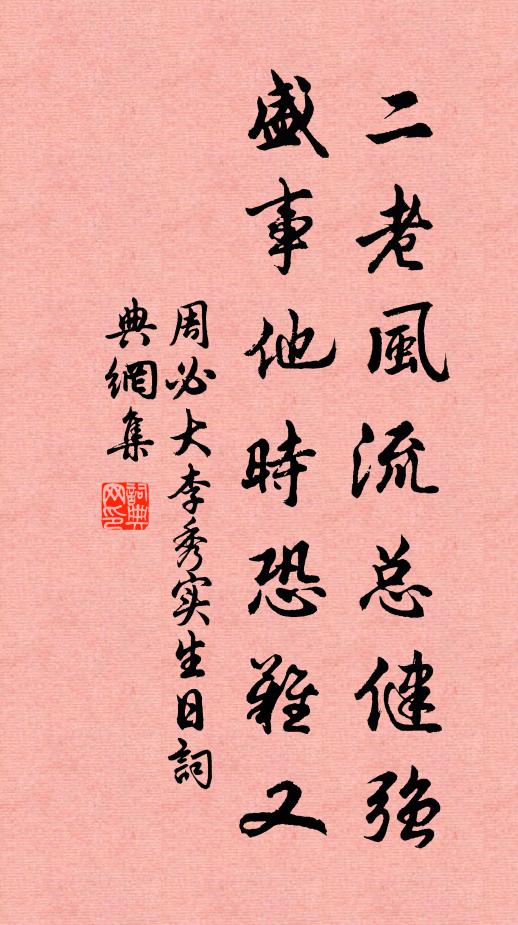 二老風流总健强
盛事他時恐難又
周必大李秀实生日詞
典網集
詞典网印